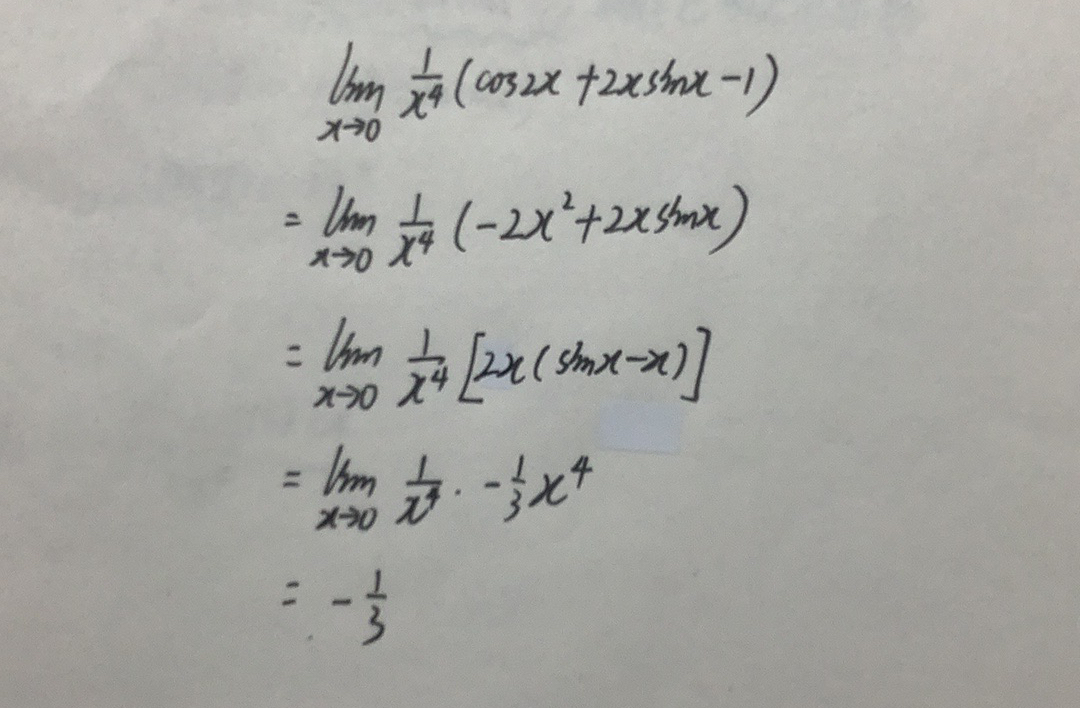 lim x→0 1/x⁴ (cos2x + 2x sinx - 1)
= lim x→0 1/x⁴ (-2x² + 2x sinx)
= lim x→0 1/x⁴ [2x(sinx - x)]
= lim x→0 1/x⁴ · -1/3 x⁴
= -1/3